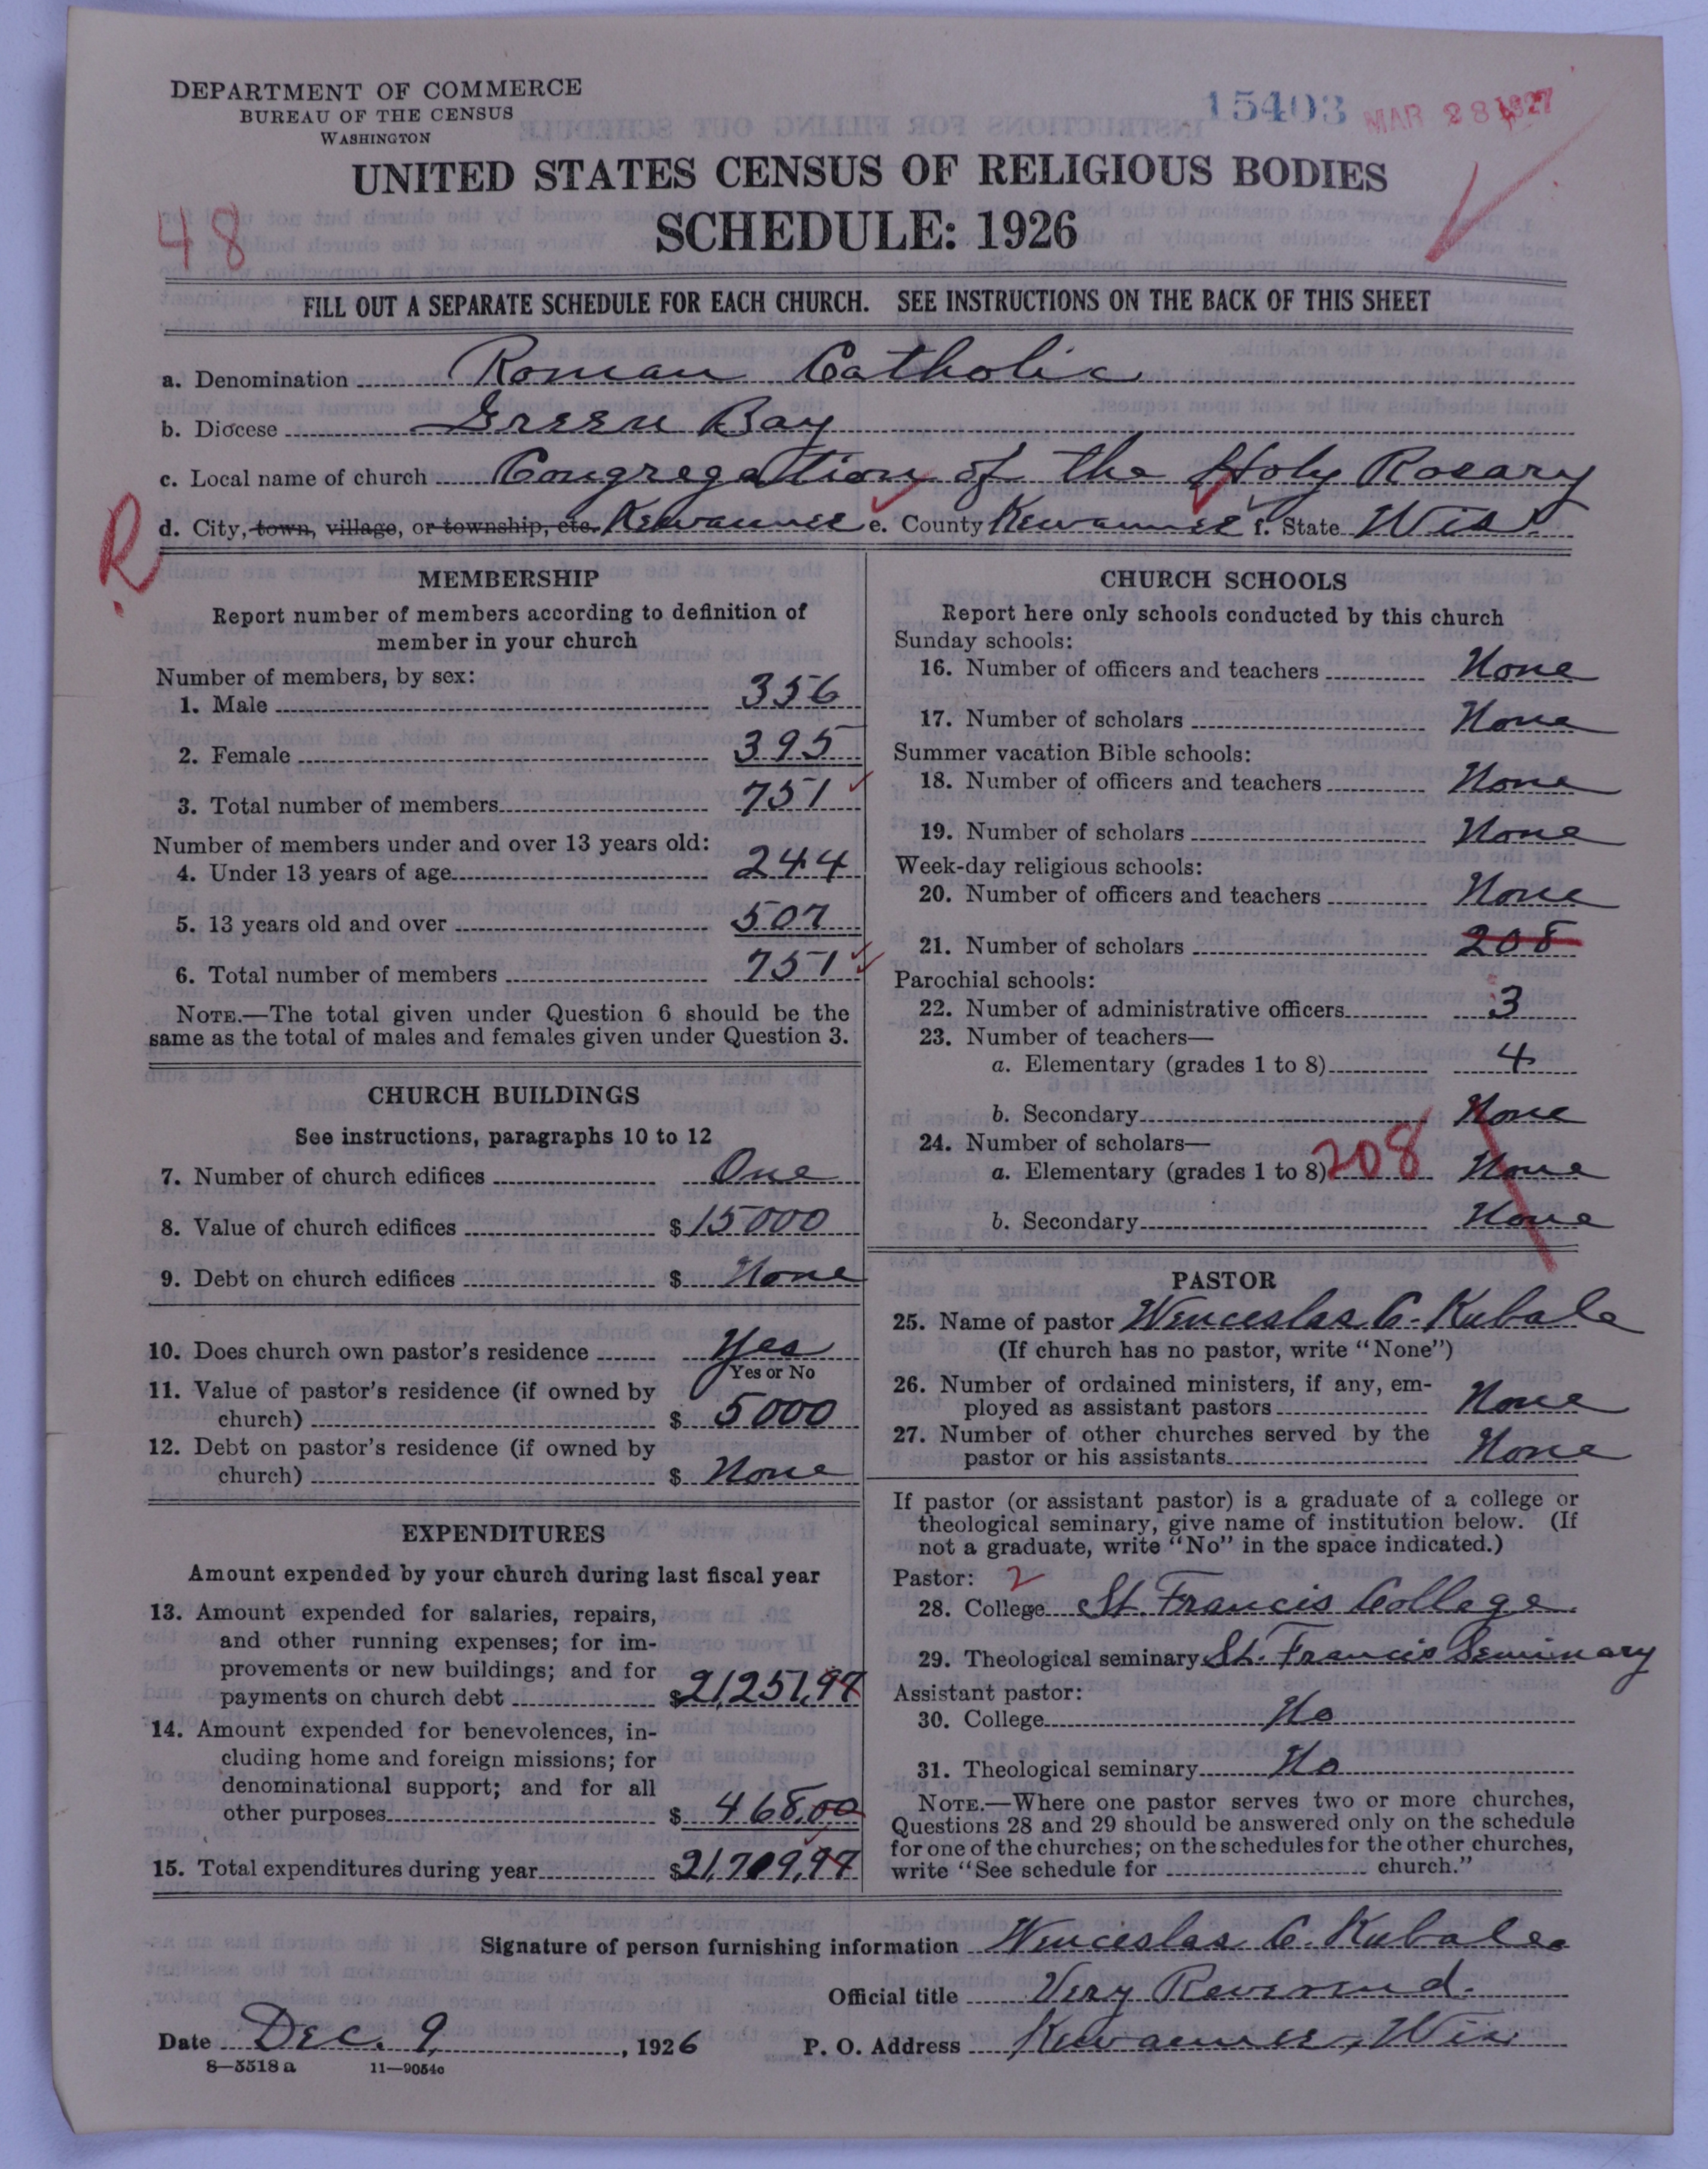 DEPARTMENT OF COMMERCE
BUREAU OF THE CENSUS
WASHINGTON
15403 MAR 28 1927
UNITED STATES CENSUS OF RELIGIOUS BODIES
SCHEDULE: 1926
48
FILL OUT A SEPARATE SCHEDULE FOR EACH CHURCH. SEE INSTRUCTIONS ON THE BACK OF THIS SHEET
a. Denomination Roman Catholic
b. Diocese Green Bay
c. Local name of church Congregation of the Holy Rosary
d. City, town, village, or township, etc. Kewaunee e. County Kewaunee f. State Wis.
R
MEMBERSHIP
Report number of members according to definition of
member in your church
Number of members, by sex:
1. Male 356
2. Female 395
3. Total number of members 751
Number of members under and over 13 years old:
4. Under 13 years of age 244
5. 13 years old and over 507
6. Total number of members 751
NOTE.—The total given under Question 6 should be the
same as the total of males and females given under Question 3.
CHURCH BUILDINGS
See instructions, paragraphs 10 to 12
7. Number of church edifices One
8. Value of church edifices $ 15000
9. Debt on church edifices $ None
10. Does church own pastor's residence Yes
Yes or No
11. Value of pastor's residence (if owned by
church) $ 5000
12. Debt on pastor's residence (if owned by
church) $ None
EXPENDITURES
Amount expended by your church during last fiscal year
13. Amount expended for salaries, repairs,
and other running expenses; for im-
provements or new buildings; and for
payments on church debt $21,251,97
14. Amount expended for benevolences, in-
cluding home and foreign missions; for
denominational support; and for all
other purposes $ 468,00
15. Total expenditures during year $21,719,97
CHURCH SCHOOLS
Report here only schools conducted by this church
Sunday schools:
16. Number of officers and teachers None
17. Number of scholars None
Summer vacation Bible schools:
18. Number of officers and teachers None
19. Number of scholars None
Week-day religious schools:
20. Number of officers and teachers None
21. Number of scholars 208
Parochial schools:
22. Number of administrative officers 3
23. Number of teachers—
a. Elementary (grades 1 to 8) 4
b. Secondary None
24. Number of scholars—
a. Elementary (grades 1 to 8) 208 None
b. Secondary None
PASTOR
25. Name of pastor Wenceslas C. Kubale
(If church has no pastor, write "None")
26. Number of ordained ministers, if any, em-
ployed as assistant pastors None
27. Number of other churches served by the
pastor or his assistants None
If pastor (or assistant pastor) is a graduate of a college or
theological seminary, give name of institution below. (If
not a graduate, write "No" in the space indicated.)
Pastor: 2
28. College St. Francis College
29. Theological seminary St. Francis Seminary
Assistant pastor:
30. College No
31. Theological seminary No
NOTE.—Where one pastor serves two or more churches,
Questions 28 and 29 should be answered only on the schedule
for one of the churches; on the schedules for the other churches,
write "See schedule for ---------- church."
Signature of person furnishing information Wenceslas C. Kubale
Official title Very Reverend.
Date Dec. 9, , 1926 P. O. Address Kewaunee, Wis.
8—5518a 11—9054c